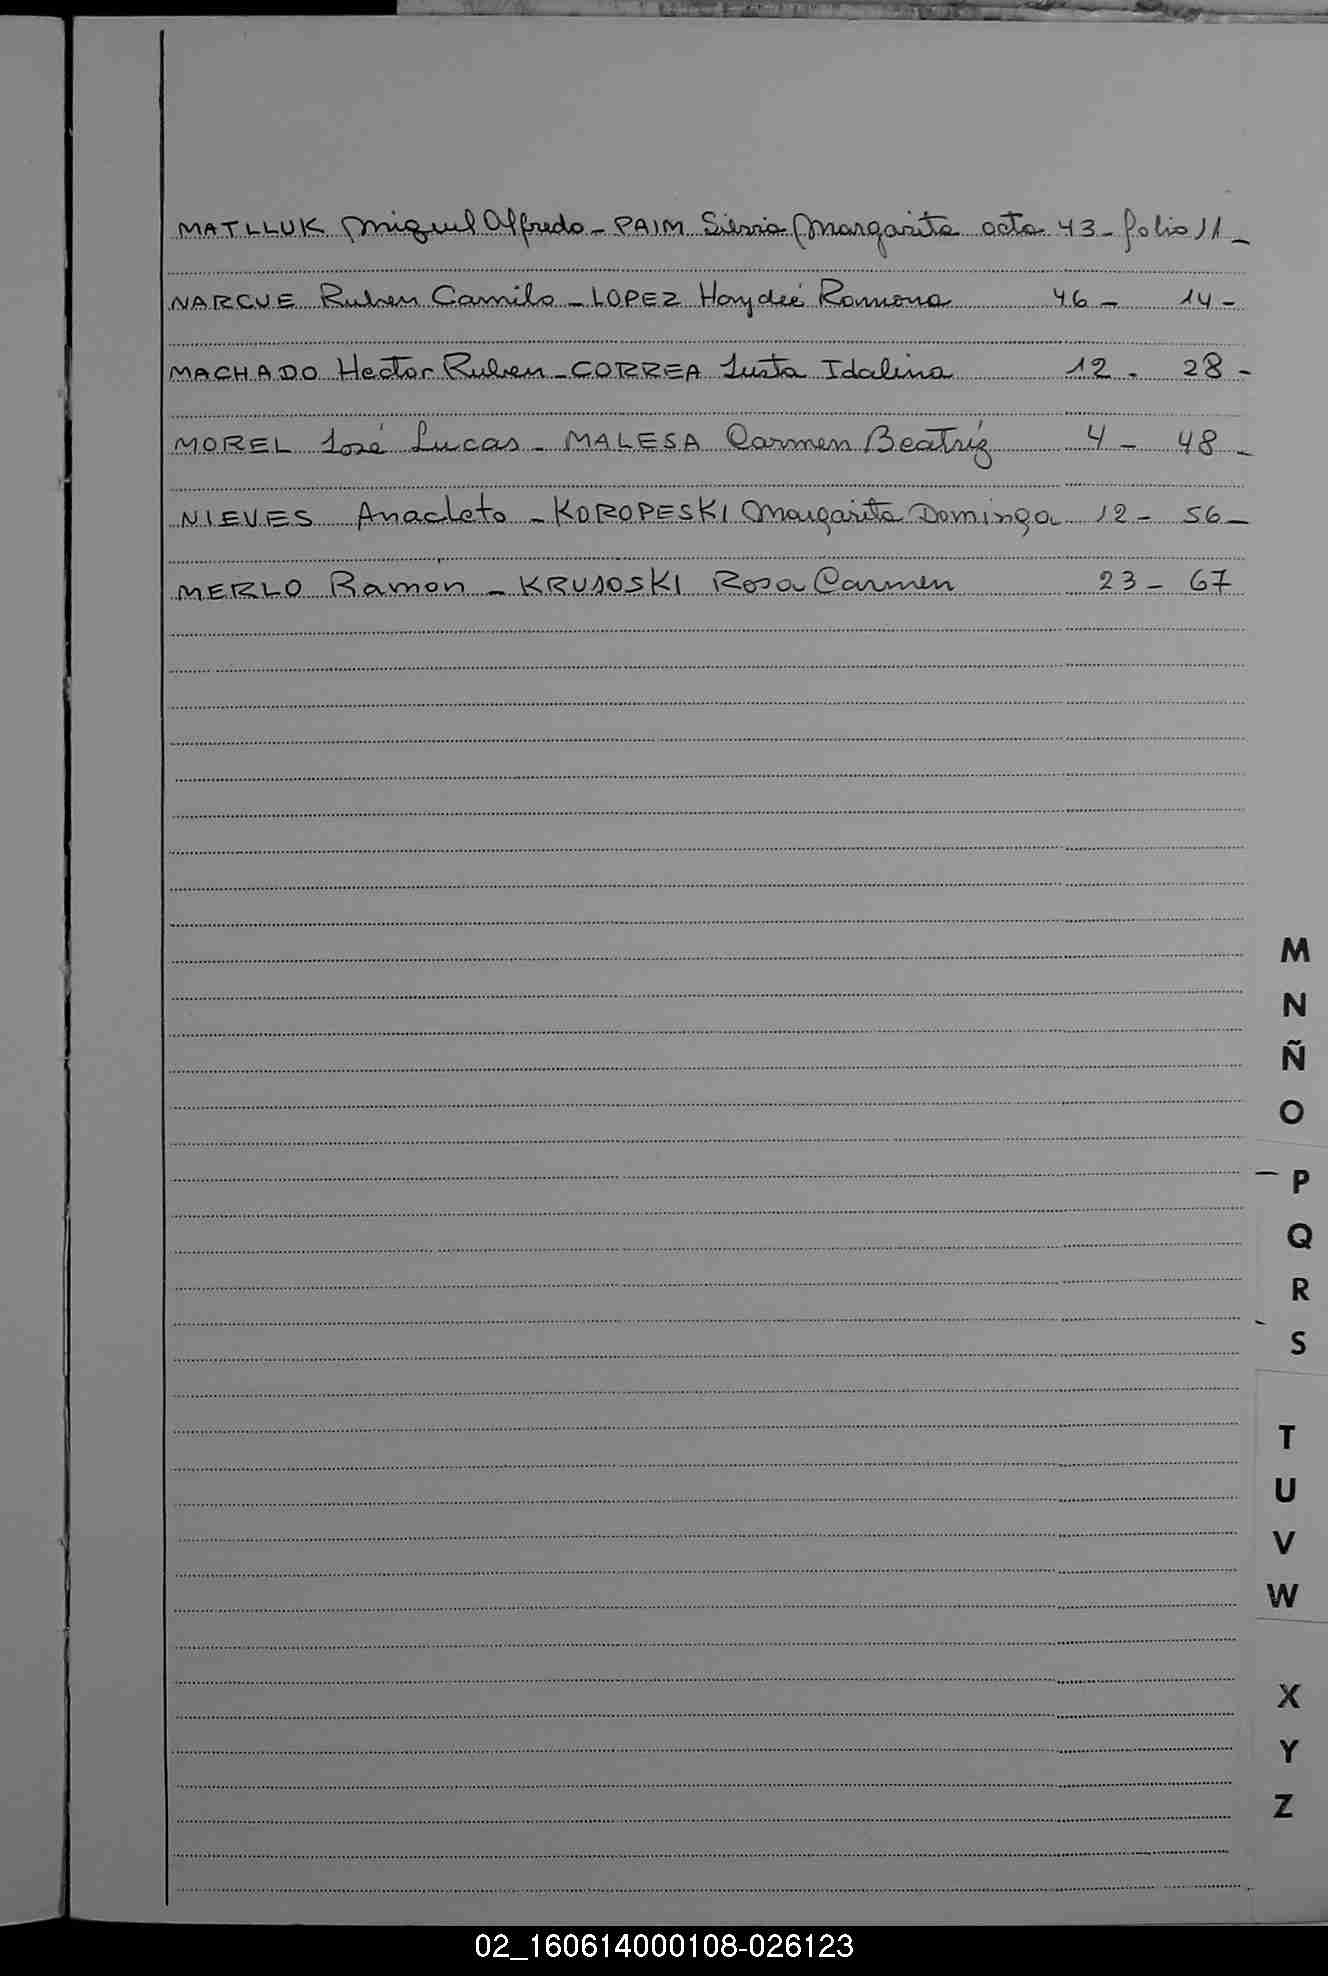 MATLLUK Miguel Alfredo - PAIM Silvia Margarita acta 43 - folio 11 -
NARCUE Ruben Camilo - LOPEZ Haydeé Ramona 46 - 14 -
MACHADO Hector Ruben - CORREA Justa Idalina 12 - 28 -
MOREL José Lucas - MALESA Carmen Beatríz 4 - 48 -
NIEVES Anacleto - KOROPESKI Margarita Dominga 12 - 56 -
MERLO Ramon - KRUJOSKI Rosa Carmen 23 - 67
M
N
Ñ
O
P
Q
R
S
T
U
V
W
X
Y
Z
02_160614000108-026123